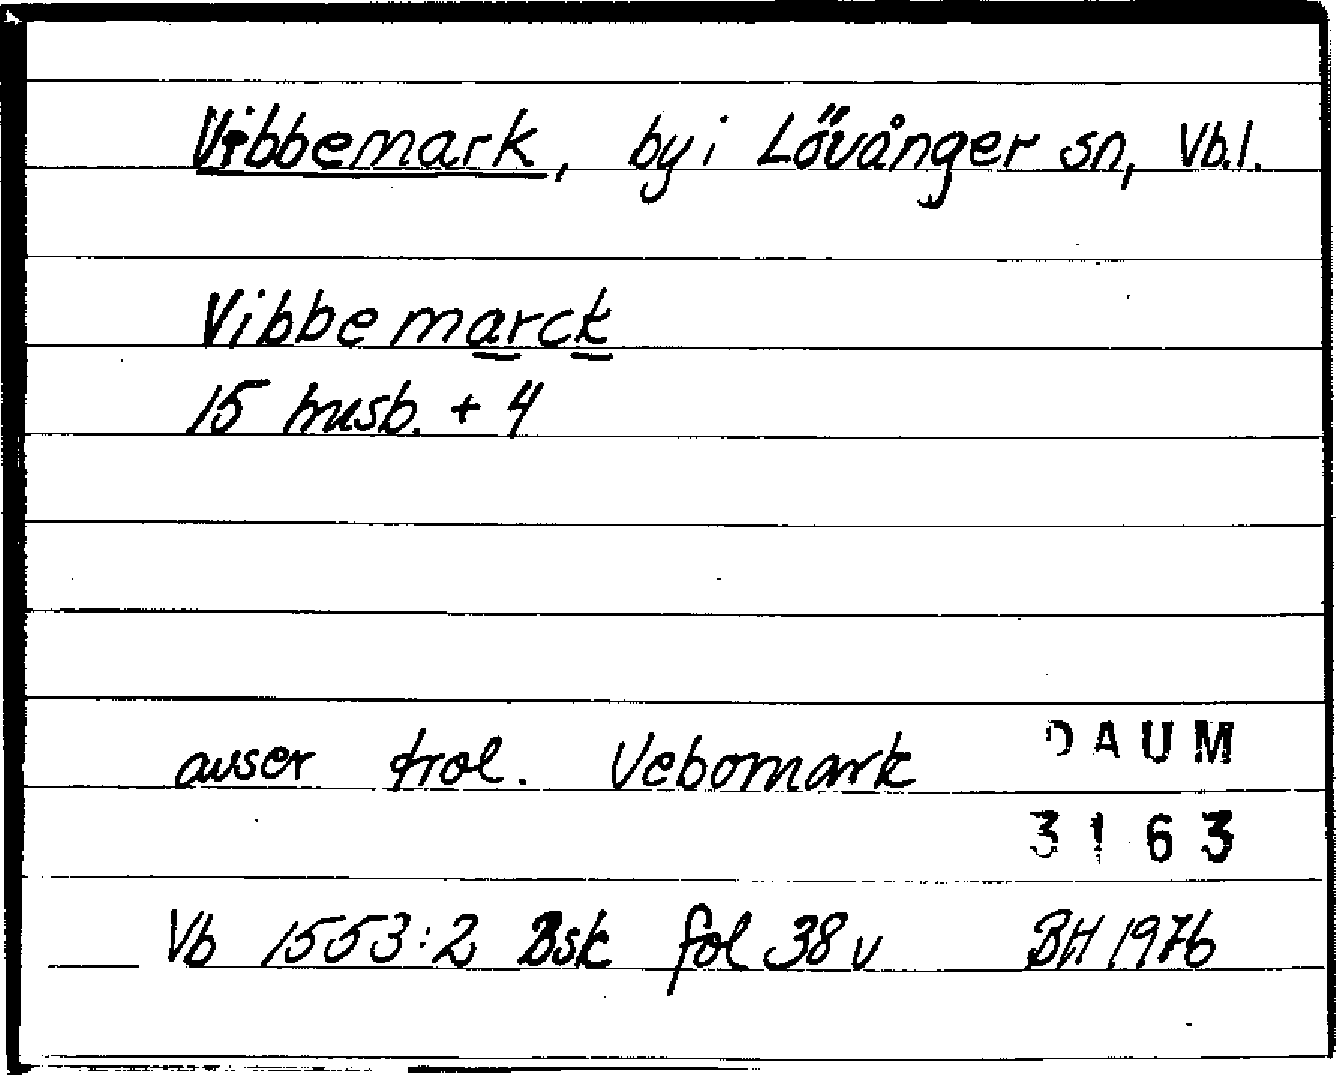 Vibbemark, by i Lövånger sn, Vb.l.
Vibbemarck
15 husb. + 4
avser trol. Vebomark
DAUM
3163
Vb 1553:2 Bsk fol 38 v BH 1976